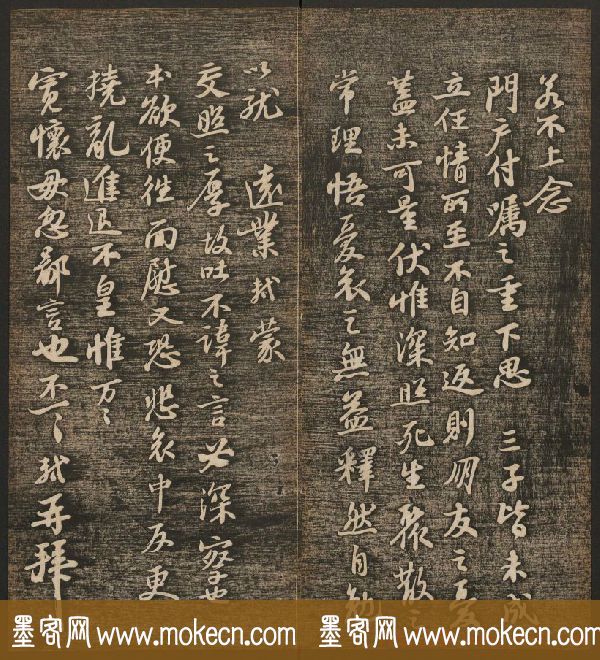 若不上念
門户付囑之重下思 三子皆未成
立任情所至不自知返則朋友之憂
蓋未可量伏惟深照死生聚散之
常理悟憂哀之無益釋然自勉
以就 遠業軾蒙
交照之厚故吐不諱之言必深察
本欲便往面慰又恐悲哀中反更
撓亂進退不皇惟万々
寬懷毋忽鄙言也不一々軾再拜
墨客网 www.mokecn.com 墨客网 www.mokecn.com